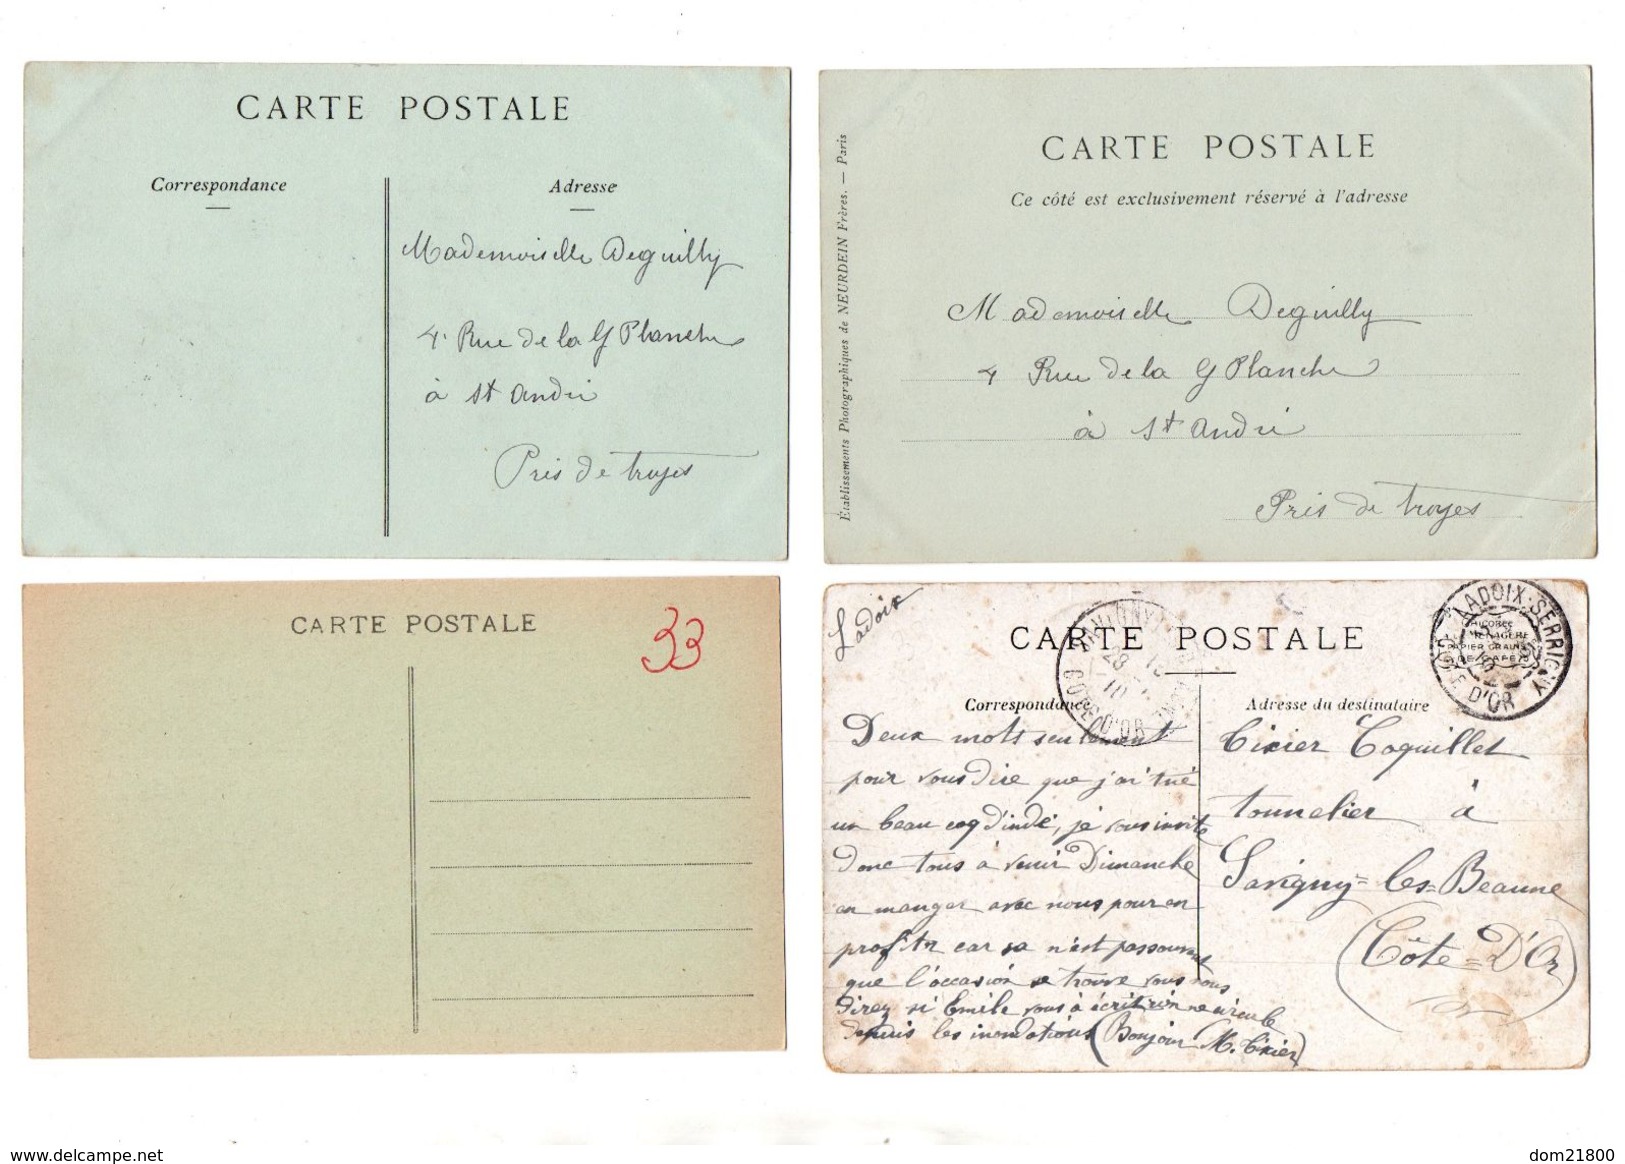 CARTE POSTALE
Correspondance
Adresse
Mademoiselle Deguilly
4 Rue de la Gde Planche
à St André
Près de troyes
Établissements Photographiques de NEURDEIN Frères. — Paris
CARTE POSTALE
Ce côté est exclusivement réservé à l'adresse
Mademoiselle Deguilly
4 Rue de la Gde Planche
à St André
Près de troyes
CARTE POSTALE
33
Ladoix
CARTE POSTALE
LADOIX-SERRIGNY
CÔTE D'OR
Correspondance
Adresse du destinataire
Deux mots seulement
pour vous dire que j'ai tué
un beau coq d'inde, je vous invite
donc tous à venir Dimanche
en manger avec nous pour en
profiter car sa n'est pas souvent
que l'occasion se trouve vous nous
direz si Emile vous à écrit rien ne circule
depuis les inondations (Bonjour M. Tixier)
Tixier Coquillet
tonnelier à
Savigny-les-Beaune
(Côte-D'Or)
www.delcampe.net
dom21800